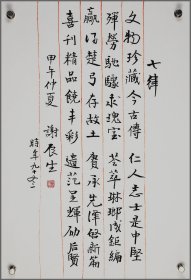 七律
文物珍藏今古傳 仁人志士是中堅
殫勞馳驟求瑰宝 荟萃琳瑯成鉅編
赢得楚弓存故土 賡承先澤啓新篇
喜刊精品饒丰彩 遺范星輝励后賢
甲午仲夏 謝辰生
時年九十